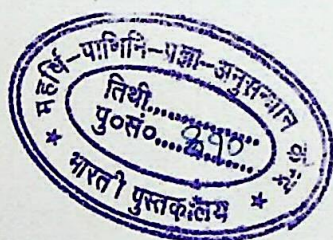 महर्षि-पाणिनि-प्रज्ञा-अनुसन्धान केन्द्र
तिथी..............
पु०सं०..............
★ भारती पुस्तकालय ★